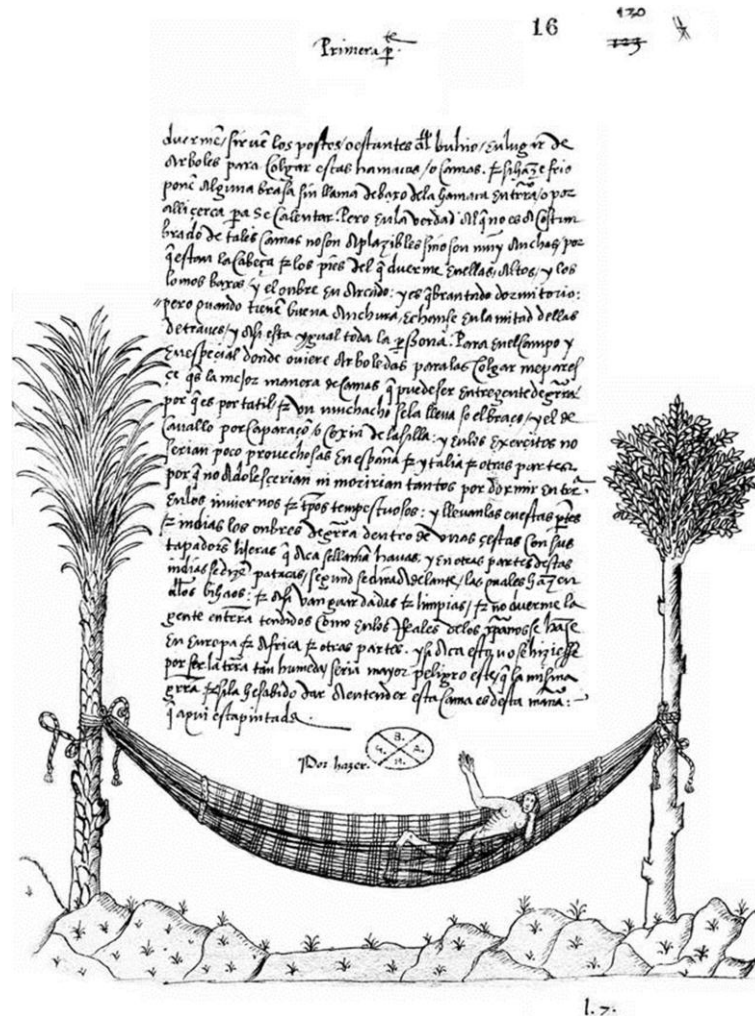 16
130
123
Primera pte.
duermē / sirvē los postes / o estantes dl buhio / en lugar de
arboles para colgar estas hamacas / o camas. & si haze frio
ponē alguna brasa sin llama debaxo dela hamaca en trrā / o por
alli çerca pa se calentar. Pero en la verdad al q̄ no es acostum
brado de tales camas no son aplazibles si no son muy anchas / por
q̄ estan la cabeça & los pies del q̄ duerme en ellas / altos / y los
lomos baxos / y el onbre en arcado: y es q̄brantado dormitorio:
pero quando tienē buena anchura / echanse en la mitad dellas
de traves / y asi esta ygual toda la psona. Para en el campo y
en espeçial donde oviere arboledas para las colgar me pares
çe q̄s la mejor manera de camas q̄ puede ser entre gente de grrā
por q̄ es portatil & un muchacho se la lleva so el braço / y el de
cavallo por caparaço / o coxin de la silla: y en los exerçitos no
serian poco provechosas en españa & ytalia & otras partes
por q̄ no adolesçerian ni moririan tantos por dormir en trrā
en los inviernos & tpos tempestuosos: y llevanlas en estas ptes
& indias los onbres de grrā dentro de unas çestas con sus
tapadores lijeras q̄ aca se llamā havas, y en otras partes destas
indias se dizē patacas / segund se dira adelante / las quales hazen
dlos bihaos: & asi van guardadas & limpias / & no duerme la
gente en trrā tendidos como en los reales delos xpanos se haze
en Europa & Africa & otras partes. y si aca esto no se hiziesse
por ser la trrā tan humeda / seria mayor peligro este / q̄ la misma
grrā. & si la he sabido dar a entender esta cama es desta manā:
q̄ aqui esta pintada.
Por hazer.
B.
G. A.
H.
l. 7.